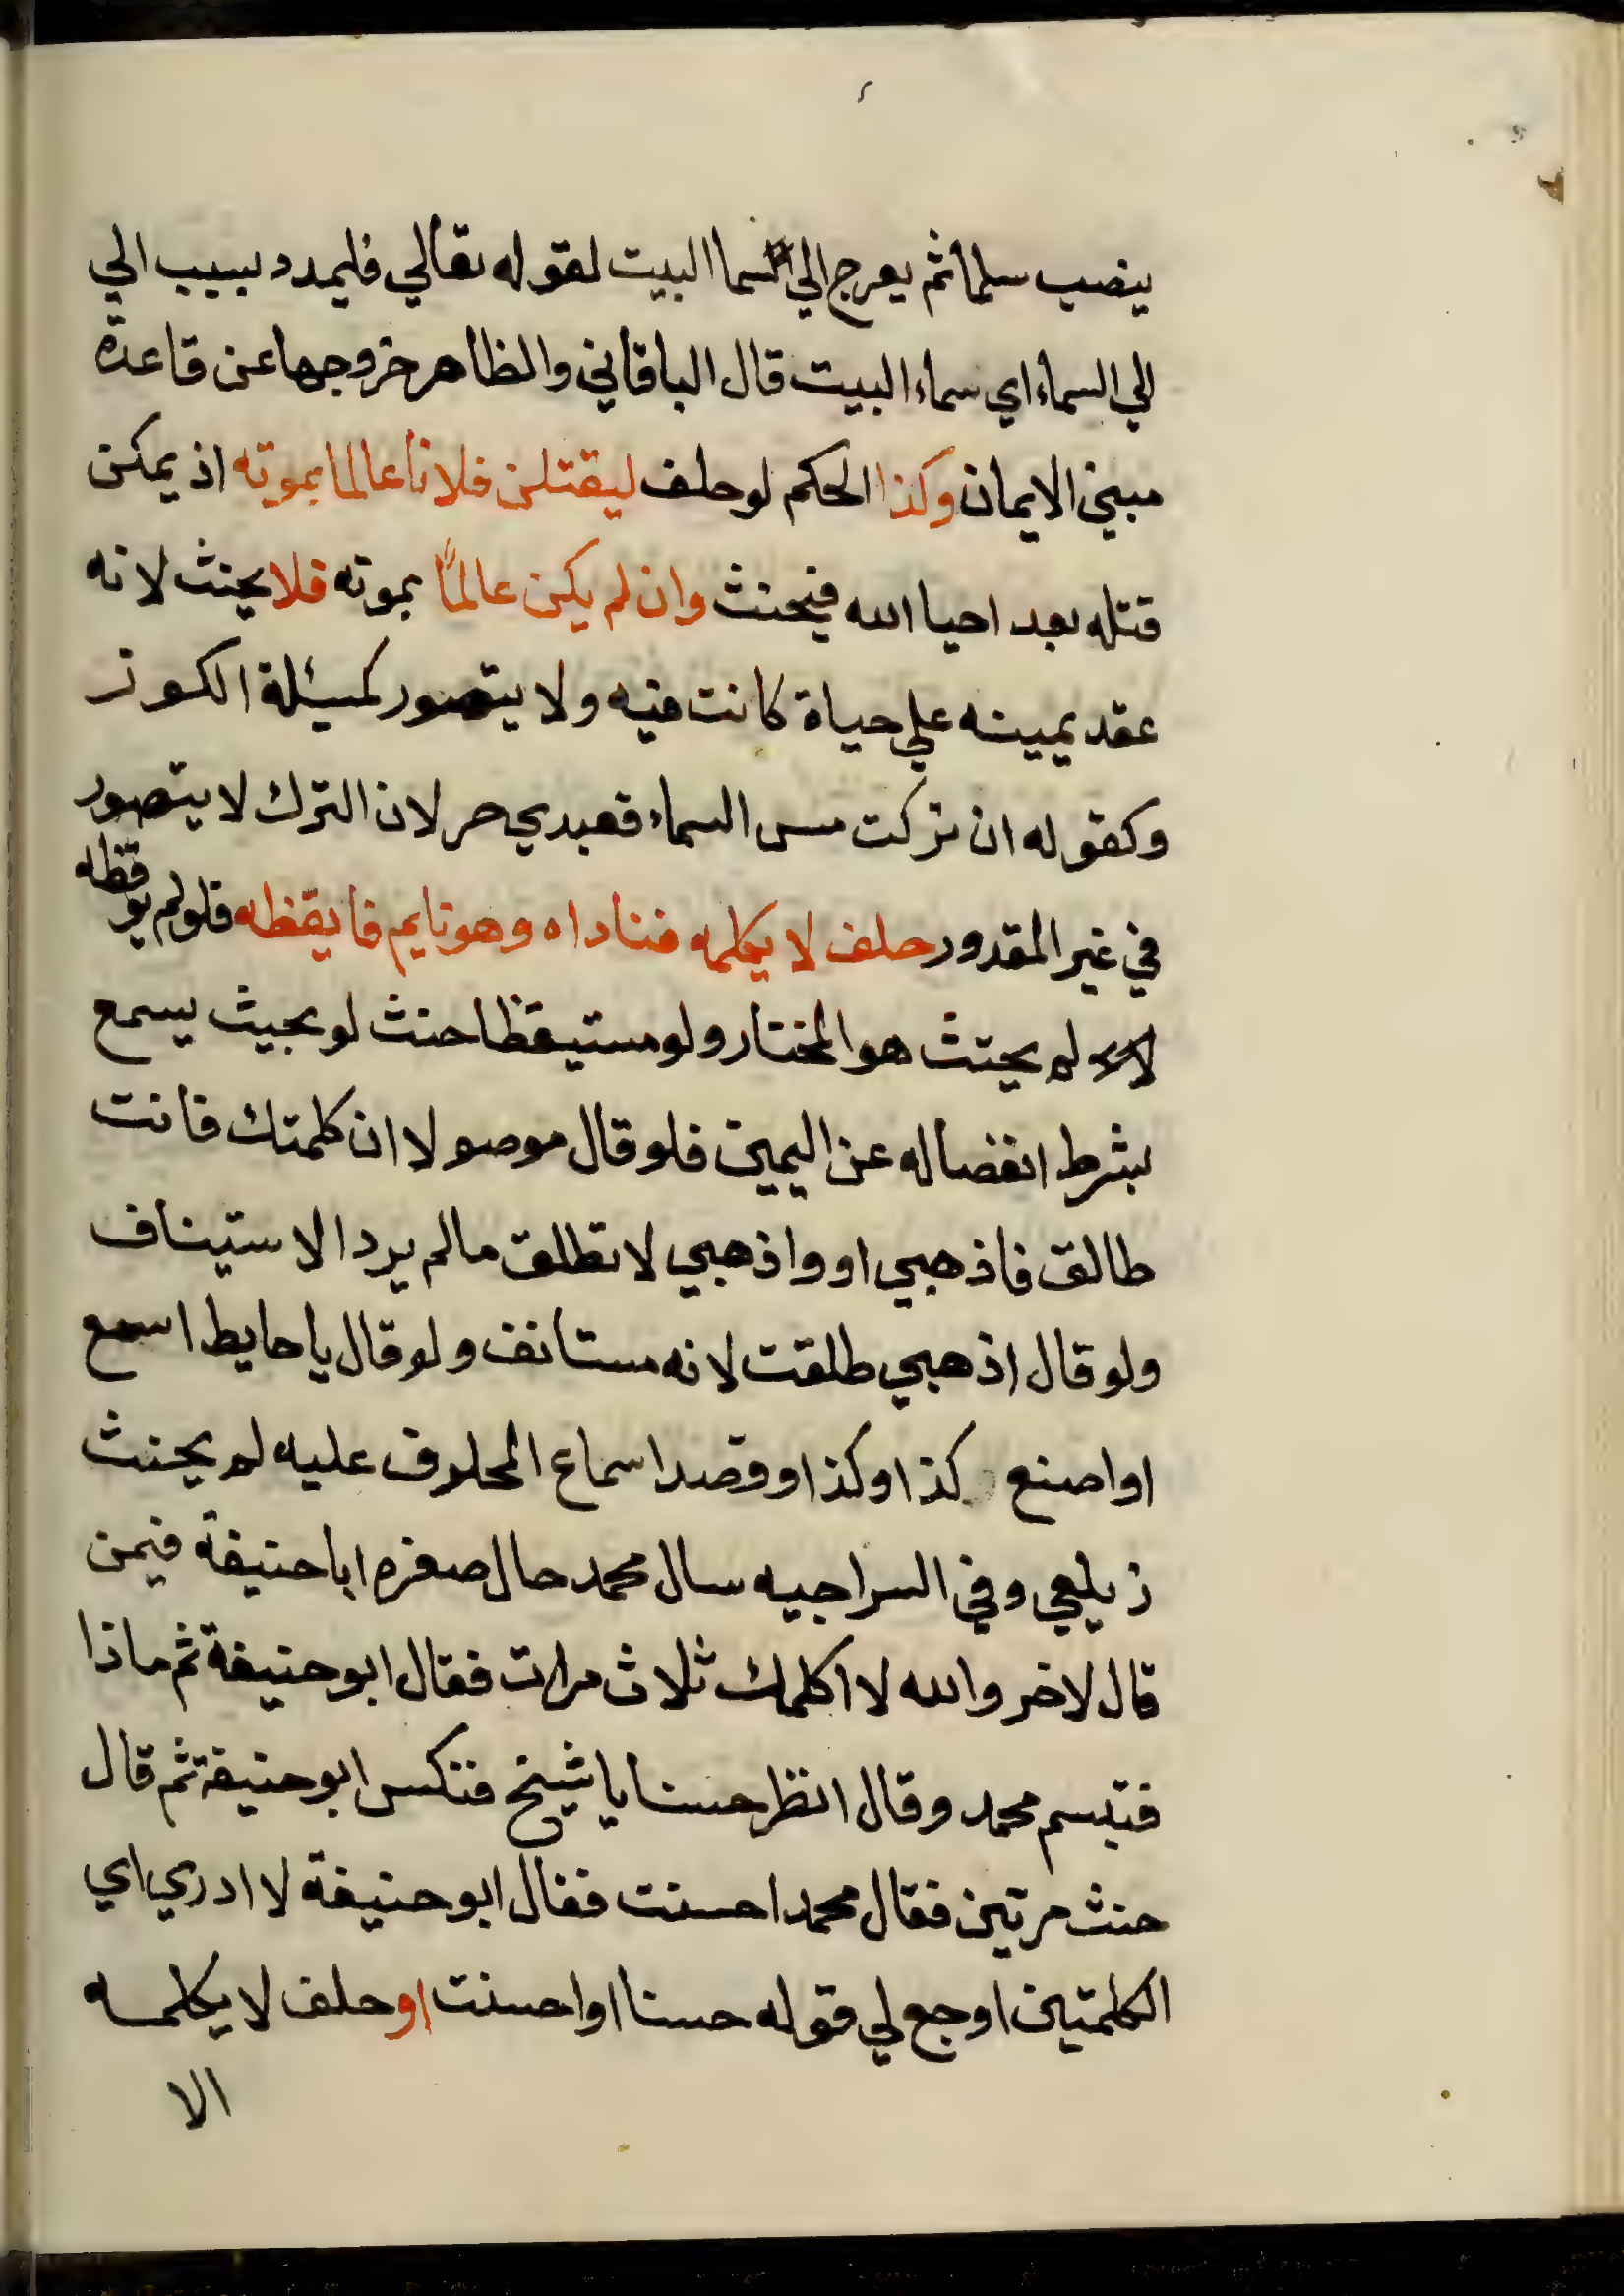 ينصب سلما ثم يعرج الي سما البيت لقوله تعالي فليمدد بسبب الي
الي السماء اي سماء البيت قال الباقاني والظاهر خروجها عن قاعدة
مبني الايمان وكذا الحكم لو حلف ليقتلن فلانا عالما بموته اذ يمكن
قتله بعد احيا الله فيحنث وان لم يكن عالمًا بموته فلا يحنث لانه
عقد يمينه علي حياة كانت فيه ولا يتصور كمسئلة الكوز
وكقوله ان تركت مس السماء فعبدي حر لان الترك لا يتصور
في غير المقدور حلف لا يكلمه فناداه وهو نايم فايقظه فلو لم يوقظه
لم يحنث هو المختار ولو مستيقظا حنث لو بحيث يسمع
بشرط انفصاله عن اليمين فلو قال موصولا ان كلمتك فانت
طالق فاذهبي او واذهبي لا تطلق ما لم يرد الاستيناف
ولو قال اذهبي طلقت لانه مستانف ولو قال يا حايط اسمع
او اصنع كذا وكذا وقصد اسماع المحلوف عليه لم يحنث
زيلعي وفي السراجيه سال محمد حال صغره ابا حنيفة فيمن
قال لاخر والله لا اكلمك ثلاث مرات فقال ابو حنيفة ثم ماذا
فتبسم محمد وقال انظر حسنا يا شيخ فنكس ابو حنيفة ثم قال
حنث مرتين فقال محمد احسنت فقال ابو حنيفة لا ادري اي
الكلمتين اوجع لي قوله حسنا او احسنت او حلف لا يكلمه
الا